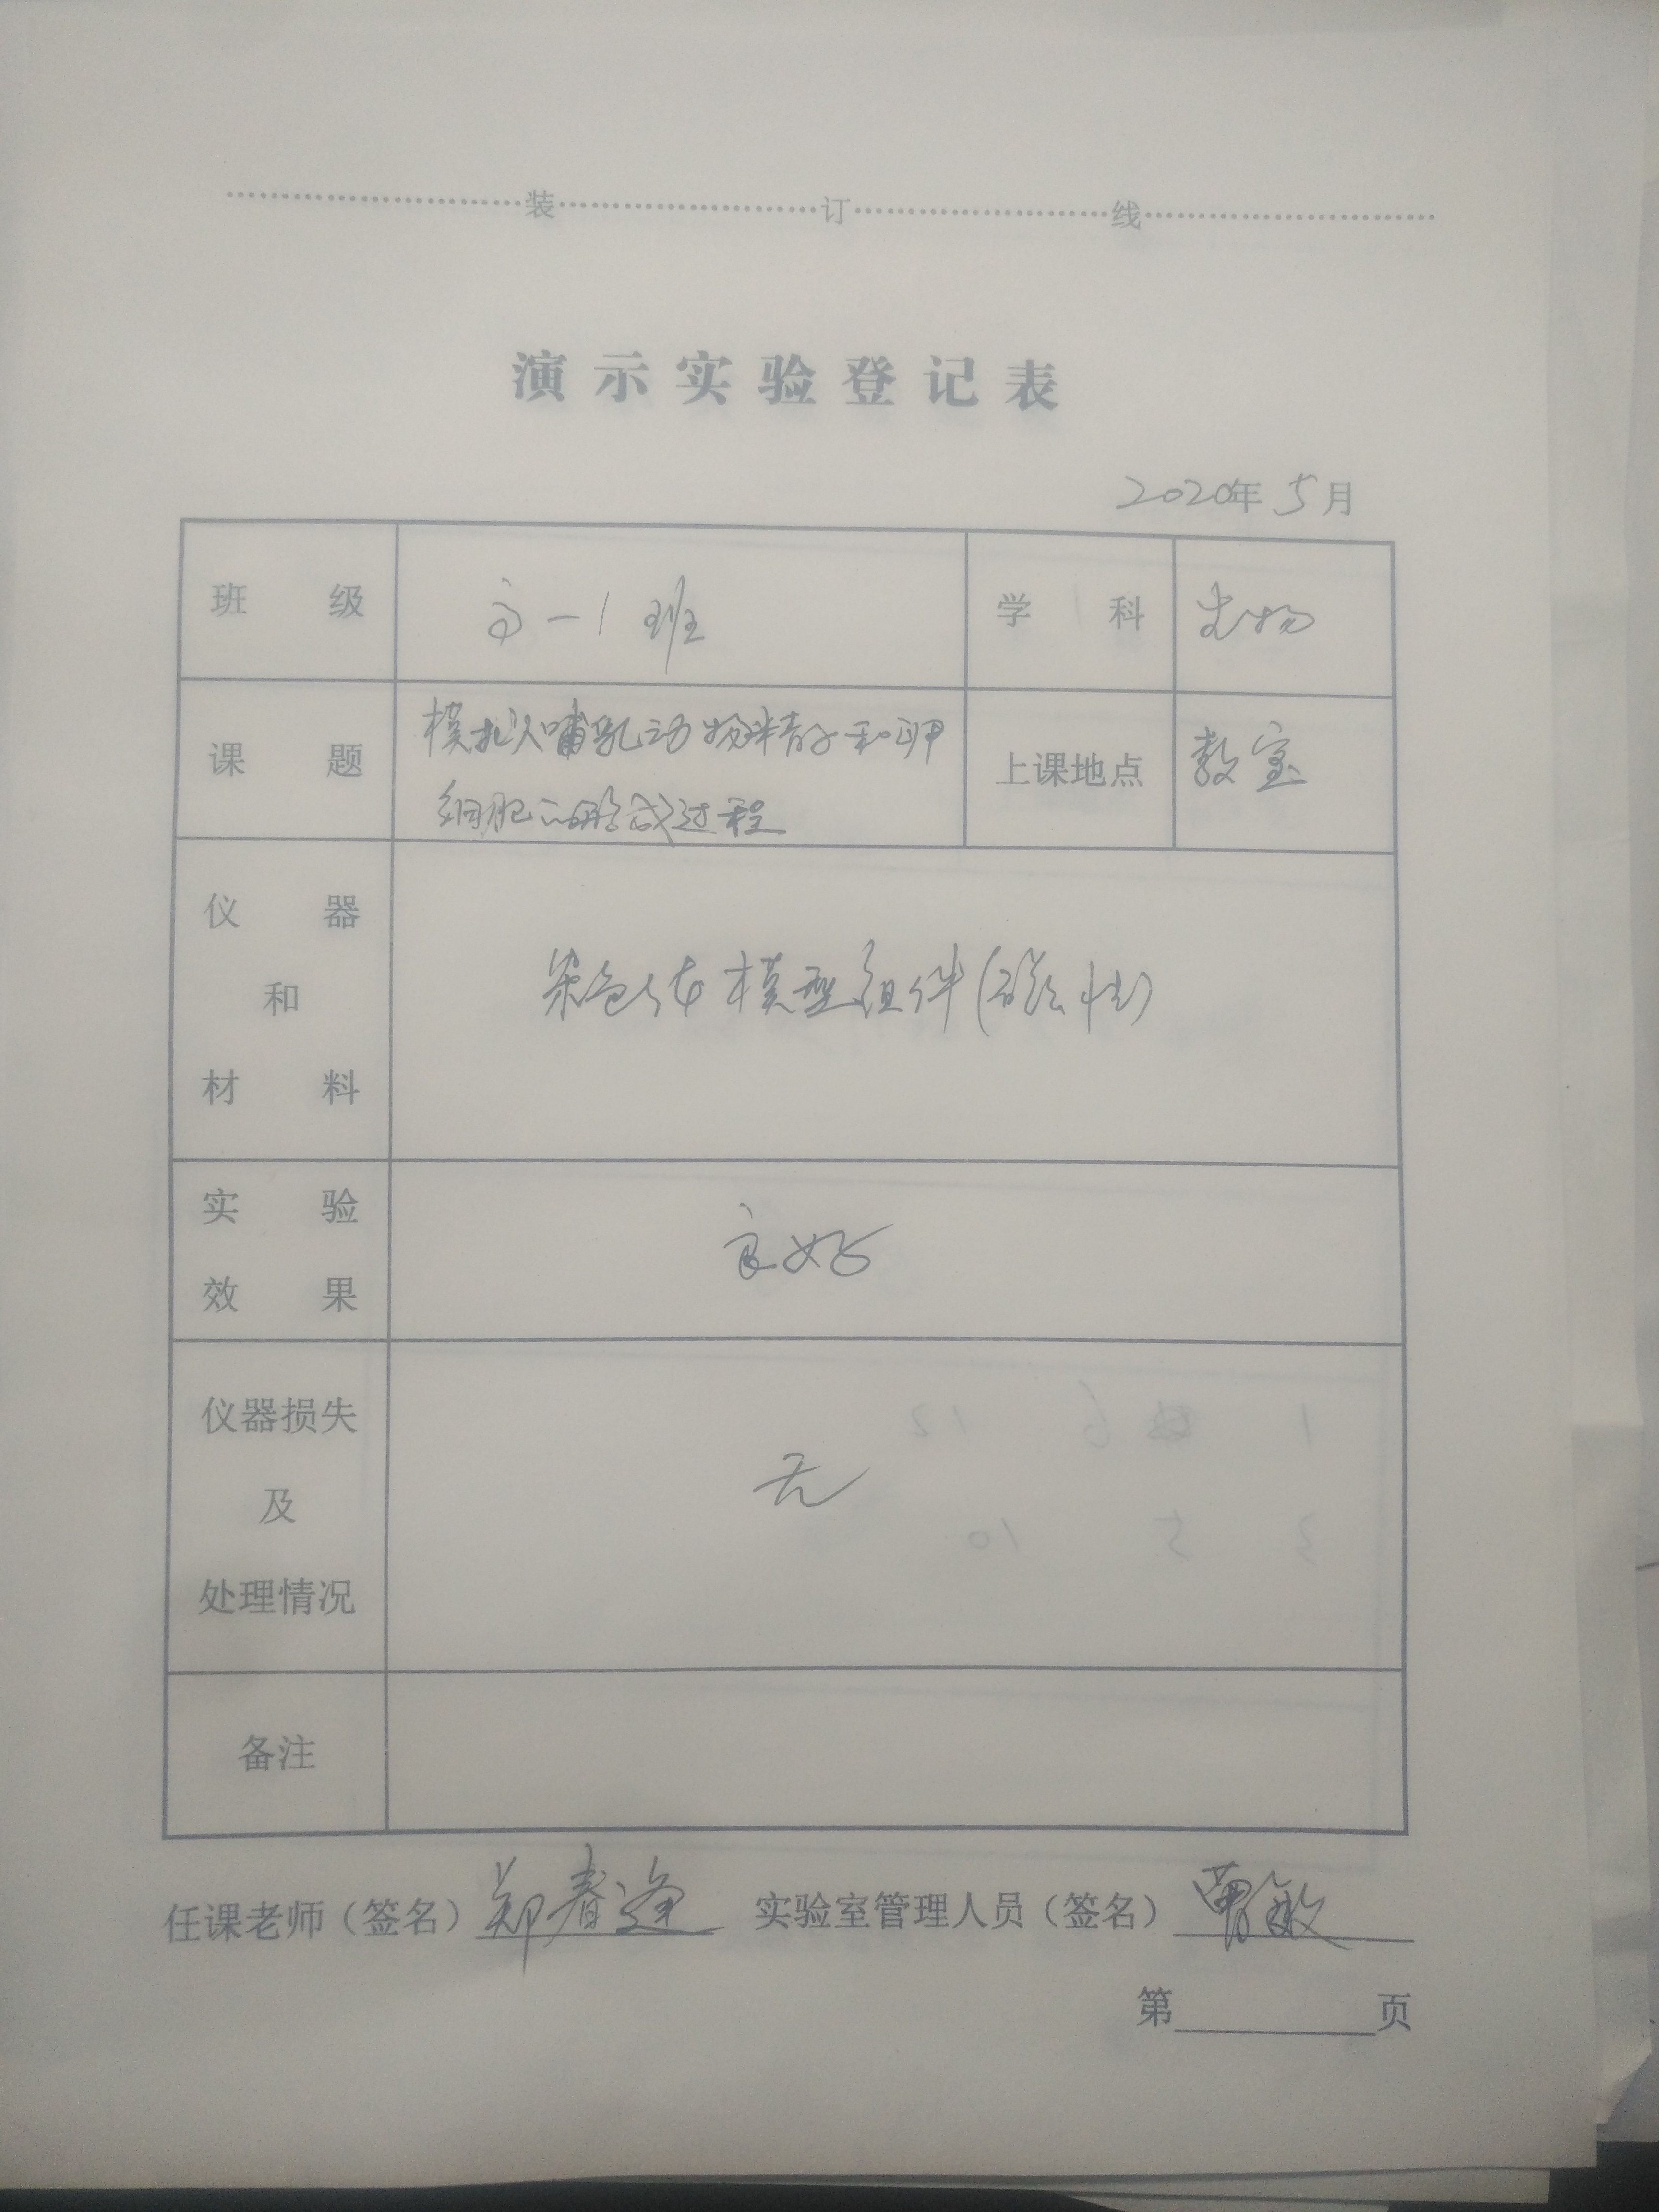 装订线
演示实验登记表
2020年5月
班级 高一1班 学科 生物
课题 模拟哺乳动物精子和卵
细胞的形成过程 上课地点 教室
仪器
和 染色体模型组件(磁性)
材料
实验
效果 良好
仪器损失
及 无
处理情况
备注
任课老师（签名）郑春逢 实验室管理人员（签名）曹敏
第 页